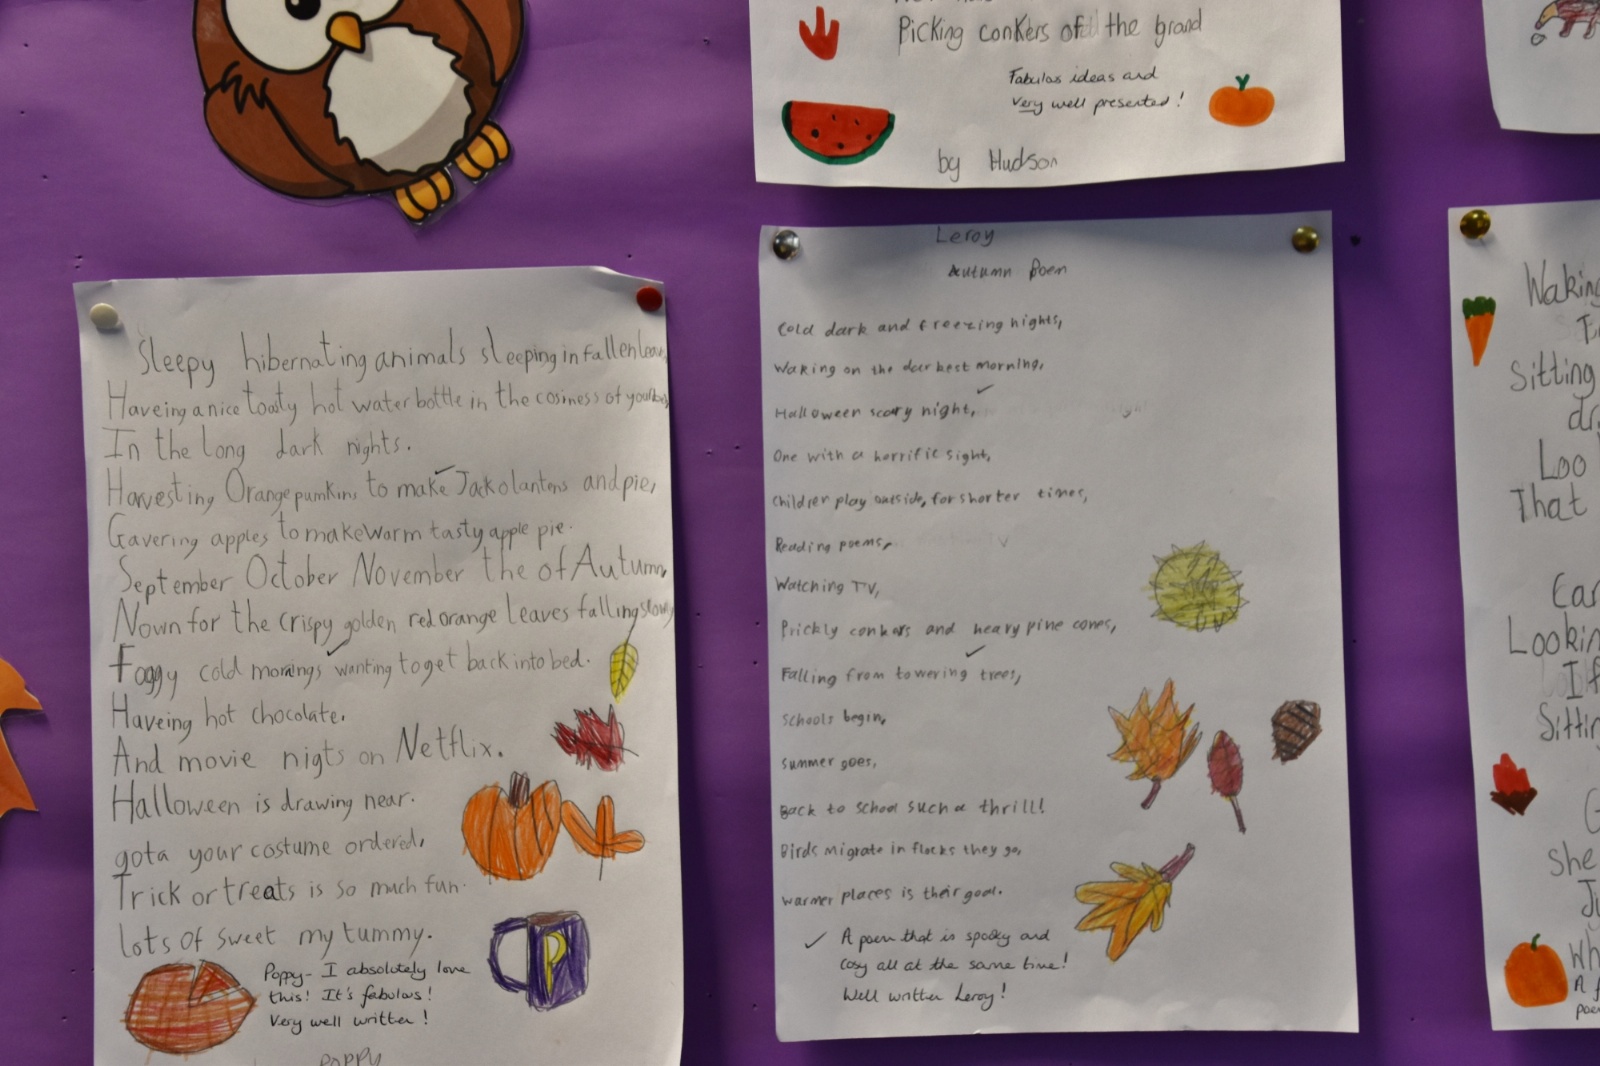 Picking conkers of the grand
Fabulas ideas and
very well presented!
by Hudson
Sleepy hibernating animals sleeping in fallen leaves
Haveing a nice toasty hot water bottle in the cosiness of your bed
In the long dark nights.
Harvesting Orange pumkins to make Jackolantens and pie,
Gavering apples to make warm tasty apple pie.
September October November the of Autumn,
Nown for the crispy golden red orange leaves falling slowly
Foggy cold mornings wanting to get back into bed.
Haveing hot chocolate.
And movie nigts on Netflix.
Halloween is drawing near.
gota your costume ordered,
Trick or treats is so much fun.
lots of sweet my tummy.
P
Poppy- I absolutely love
this! It's fabulous!
Very well written!
Poppy
Leroy
Autumn Poem
Cold dark and freezing nights,
Waking on the darkest morning,
Halloween scary night,
One with a horrific sight,
Children play outside, for shorter times,
Reading poems,
Watching TV,
Prickly conkers and heavy pine cones,
Falling from towering trees,
Schools begin,
summer goes,
Back to school such a thrill!
Birds migrate in flocks they go,
warmer places is their goal.
A poem that is spooky and
cosy all at the same time!
Well written Leroy!
Waking
Sitting
Loo
That
Ear
Lookin
If
Sittin
She
Wh
A f
poe